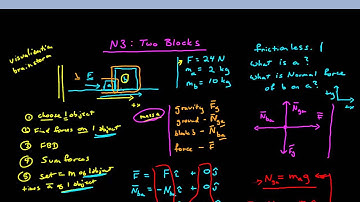 N3: Two Blocks
visualization
brainstorm
F
a
b
+x
F = 24 N
ma = 2 kg
mb = 10 kg
frictionless.
what is a?
what is Normal force
of b on a?
mass a
① choose 1 object
② Find forces on 1 object
③ FBD
④ Sum forces
⑤ set = m of 1 object
times a of 1 object
gravity Fg
ground - Ngr
block b - Nba
force - F
Ngr
Nba
F
Fg
F = F x̂ + 0 ŷ
Nba = -Nba x̂ + 0 ŷ
Ngr = mag